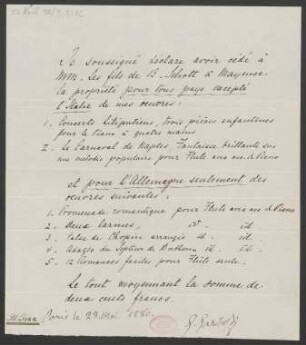 Je soussigné déclare avoir cédé à
MM. Les fils de B. Schott à Mayence
la propriété pour tous pays excepté
l'Italie de mes œuvres:
1. Concerts lilliputiens, trois pièces enfantines
pour le piano à quatre mains
2. Le Carnaval de Naples Fantaisie brillante sur
une mélodie populaire pour Flute avec acc. de Piano
et pour l'Allemagne seulement des
œuvres suivantes:
1. Promenade romantique pour Flûte avec acc. de Piano
2. Deux larmes, id - id
3. Valse de Chopin arrangée id. - id.
4. Adagio du Septuor de Beethoven id. - id.
5. 12 Romances faciles pour Flûte seule.
Le tout moyennant la somme de
deux cents francs.
Paris le 29 Mai 1880.